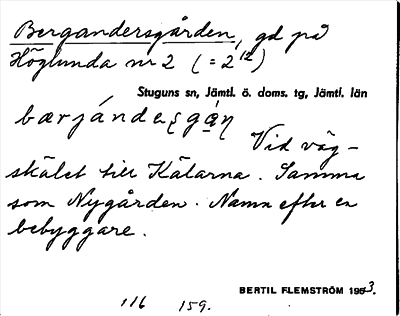 Bergandersgården, gd på
Höglunda nr 2 (= 2¹²)
Stuguns sn, Jämtl. ö. doms. tg, Jämtl. län
bærjándesgáṇ
Vid väg-
skälet till Kälarna. Samma
som Nygården. Namn efter en
bebyggare.
BERTIL FLEMSTRÖM 1953.
116 159.